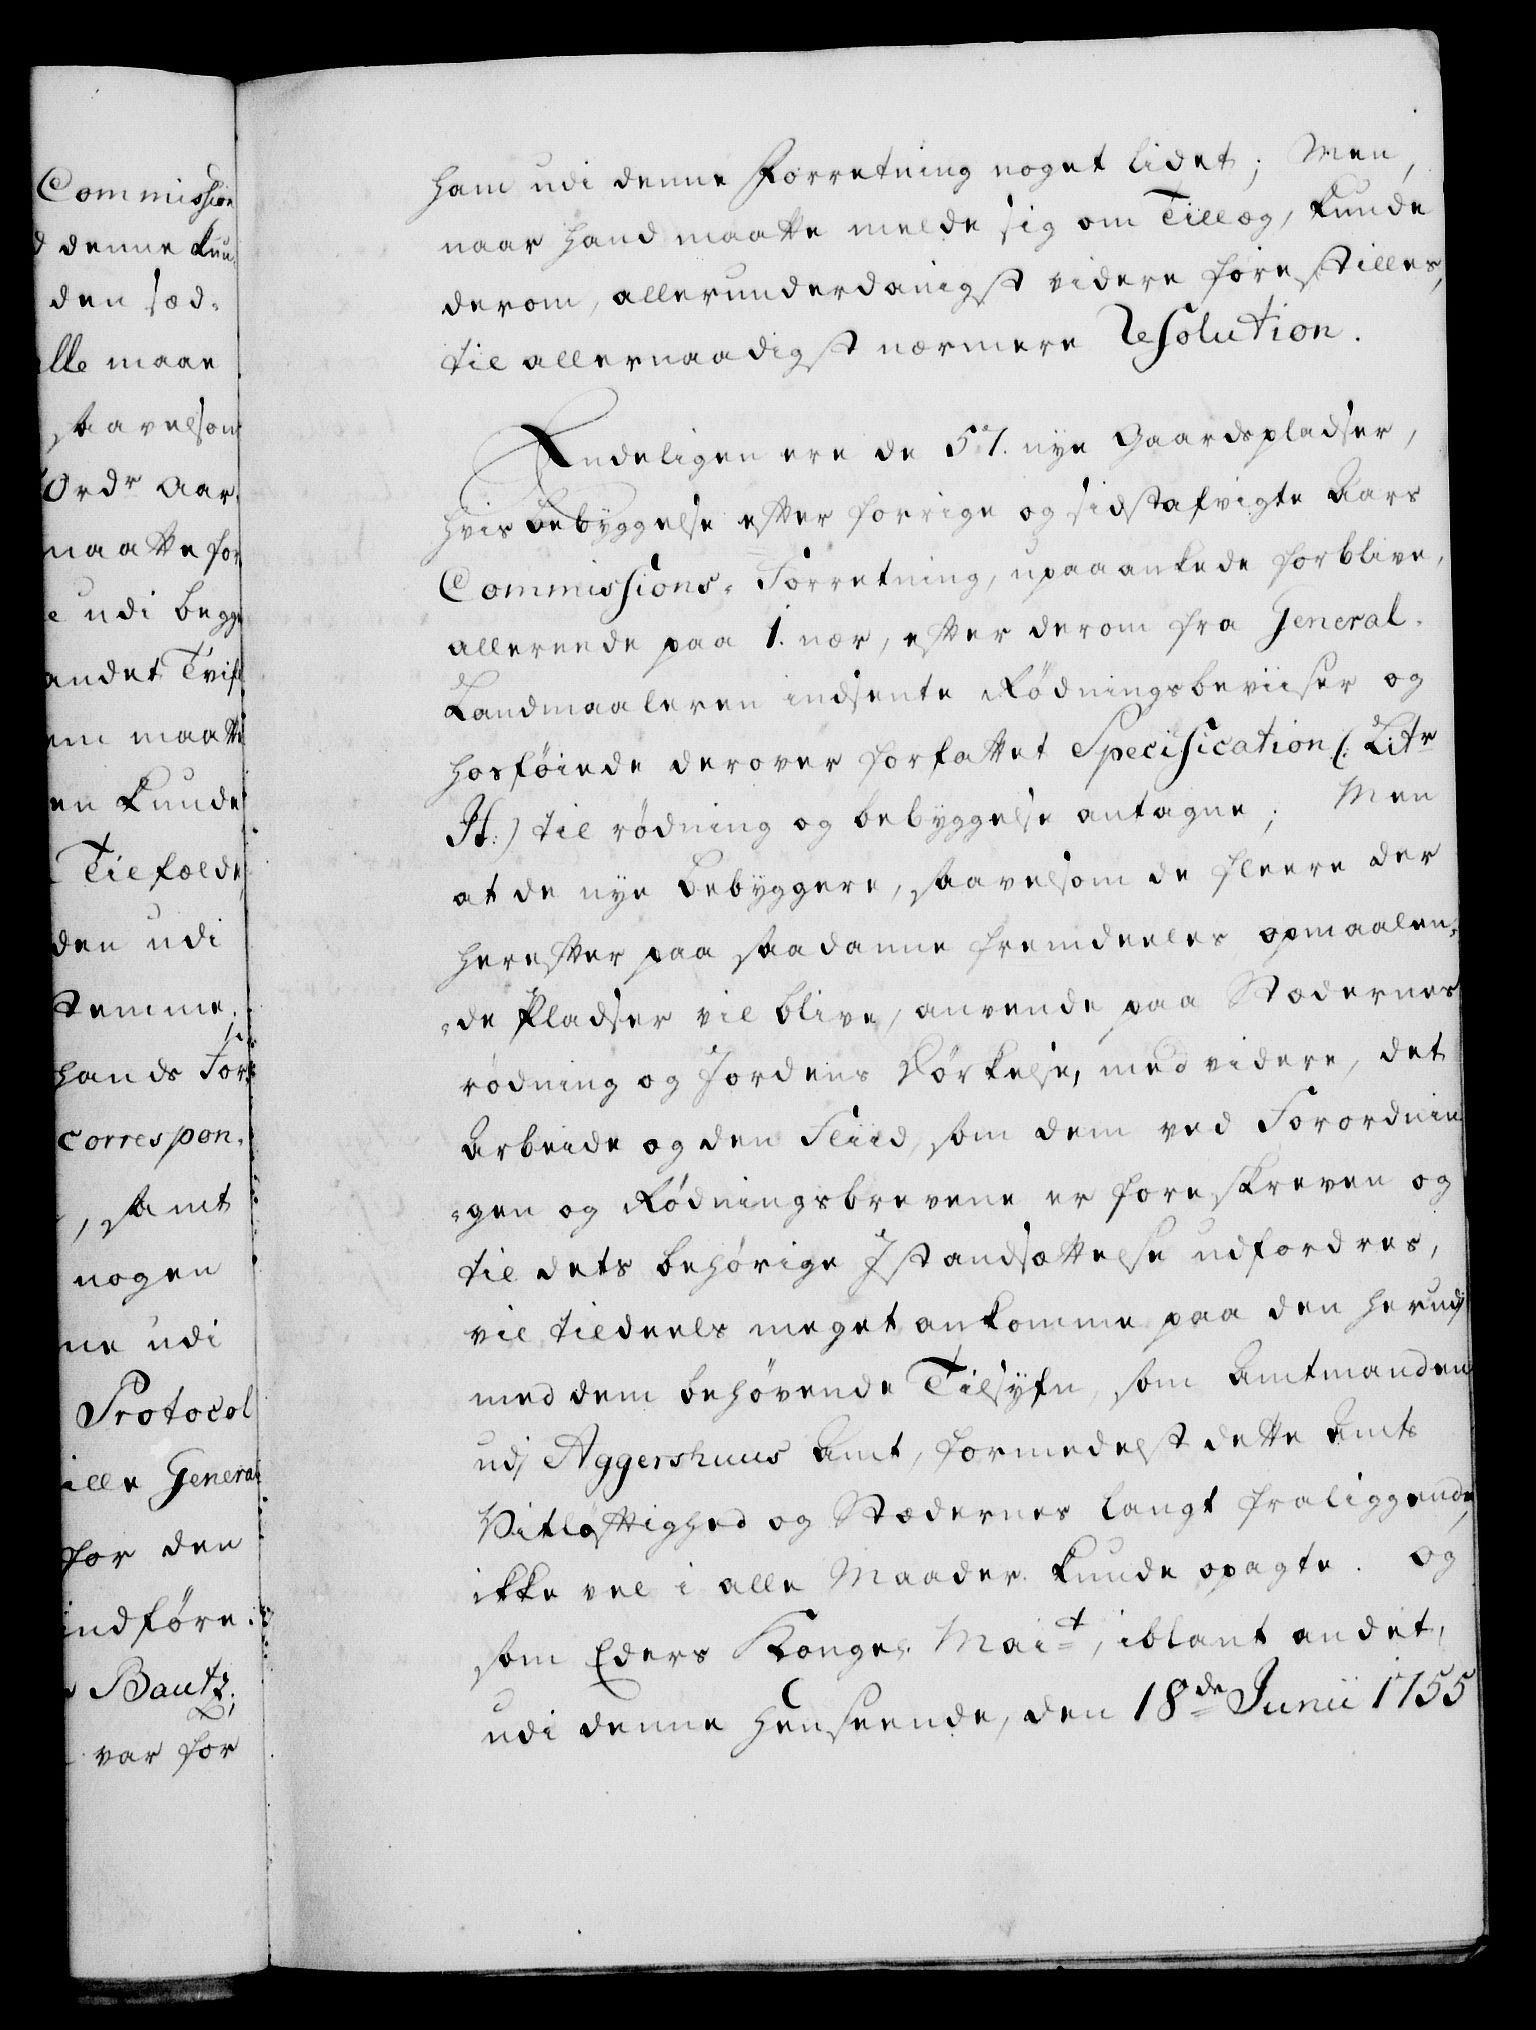 Commission
denne kun-
den sæd-
alle maae
saavelsom
Ordr Aar,
maatte for
udi begge
andet Tvifl
em maatte
en kunde
Tiefælde
den udi
stemme.
hands For-
correspon-
, samt
nogen
ne udi
Protocol
ille General
for den
indføre.
Bautz;
var for
ham udi denne Forretning noget lidet; Men,
naar hand maatte melde sig om Tillæg, kunde
derom, allerunderdanigst videre forestilles,
til allernaadigst nærmere Resolution.
Endeligen ere de 57. nye Gaardspladser,
hvis bebyggelse efter forrige og sidstafvigte Aars
Commissions- Forretning, upaaankede forblive,
allereede paa 1. nær, efter derom fra General-
Landmaaleren indsente Rødningsbeviiser og
hosføiede derover forfattet Specification (: Litr
H:) til rødning og bebyggelse antagne; Men
at de nye bebyggere, saavelsom de fleere der
herefter paa saadanne fremdeeles opmaalen-
-de Pladser vil blive, anvende paa Stædernes
rødning og Jordens Dørkelse, med videre, det
Arbeide og den Fliid, som dem ved Forordnin-
-gen og Rødningsbrevene er foreskreven og
til dets behørige Istandsættelse udfordres,
vil tildeels meget ankomme paa den herudj
med dem behøvende Tilsyfn, som Amtmanden
udj Aggershuus Amt, formedelst dette Amts
Vitløftighed og Stædernes langt fraliggende,
ikke vel i alle Maader kunde opagte. og
som Eders Kongel. Mait, iblant andet,
udi denne henseende, den 18de Junii 1755